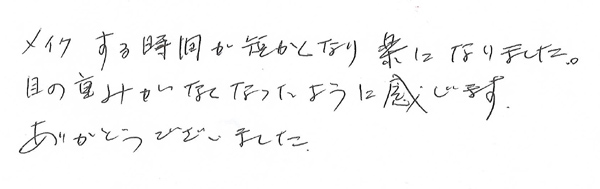 メイクする時間が短かくなり楽になりました。
目の重みがなくなったように感じます.
ありがとうございました.